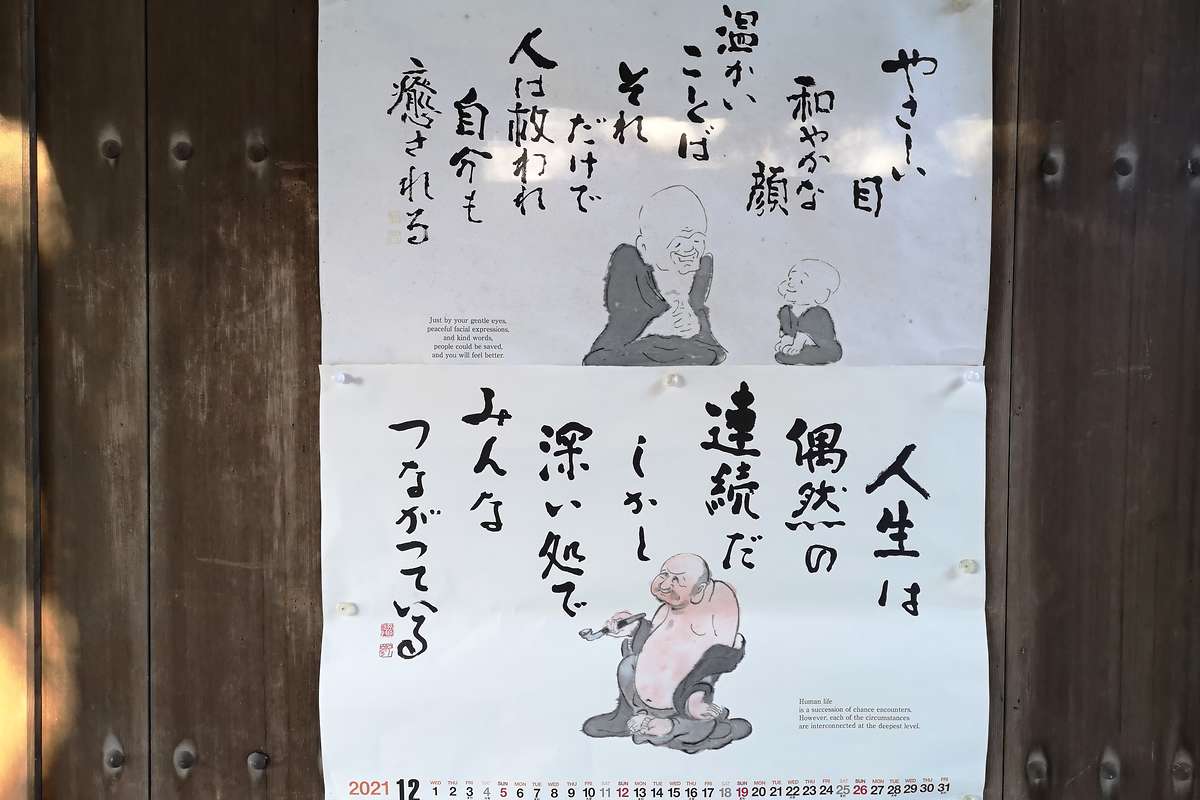 やさしい
目
和やかな
顔
温かい
ことば
それ
だけで
人は救われ
自分も
癒される
Just by your gentle eyes,
peaceful facial expressions,
and kind words,
people could be saved,
and you will feel better.
人生は
偶然の
連続だ
しかし
深い処で
みんな
つながっている
Human life
is a succession of chance encounters.
However, each of the circumstances
are interconnected at the deepest level.
2021 12
WED THU FRI SAT SUN MON TUE WED THU FRI SAT SUN MON TUE WED THU FRI SAT SUN MON TUE WED THU FRI SAT SUN MON TUE WED THU FRI
1 2 3 4 5 6 7 8 9 10 11 12 13 14 15 16 17 18 19 20 21 22 23 24 25 26 27 28 29 30 31